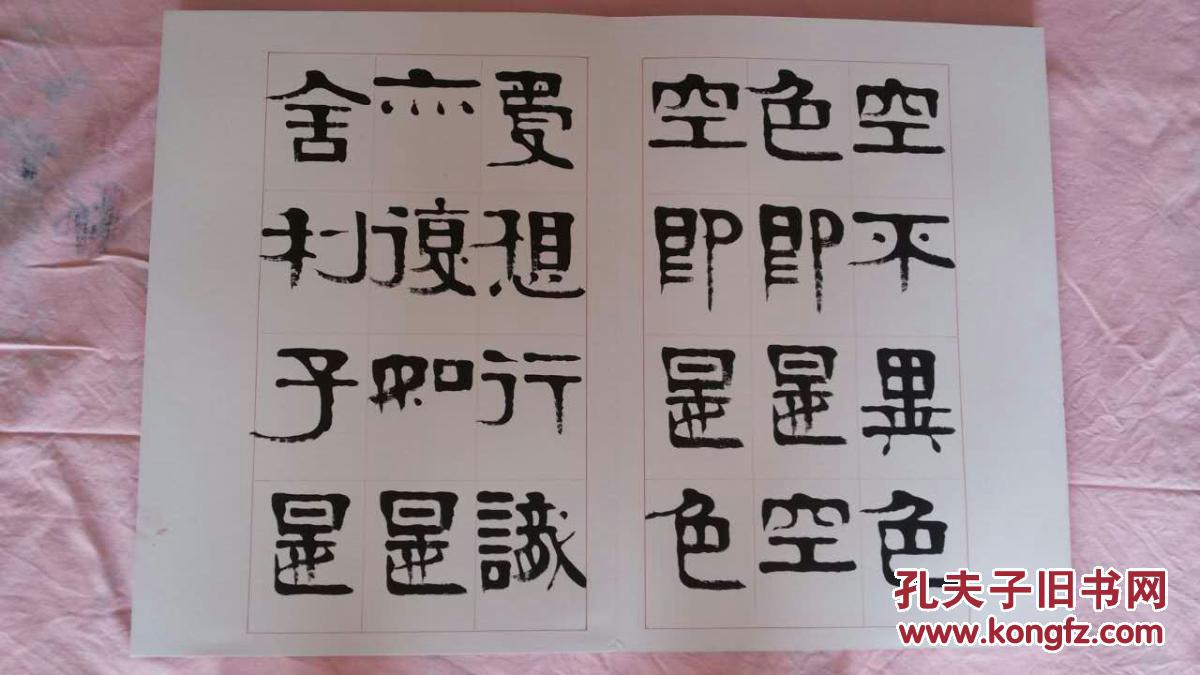 空不異色
色即是空
空即是色
受想行識
亦復如是
舍利子是
孔夫子旧书网
www.kongfz.com